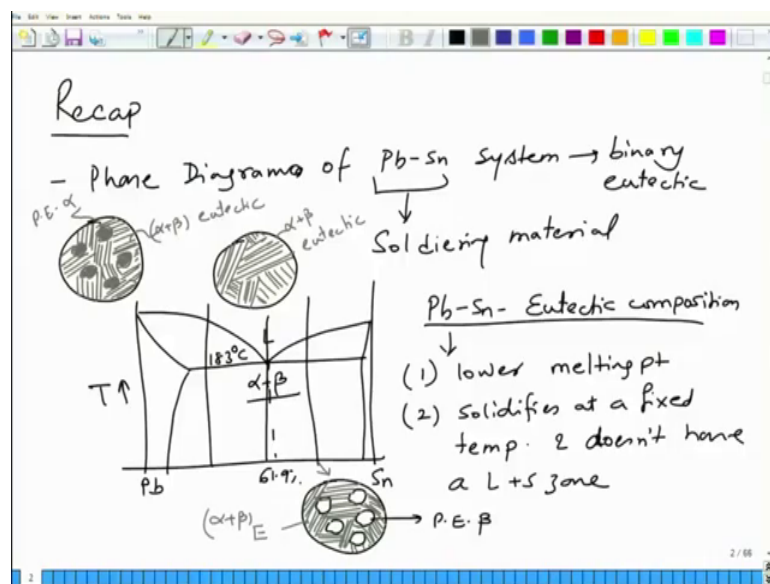 File Edit View Insert Actions Tools Help
Recap
- Phase Diagrams of Pb-Sn system → binary
eutectic
Soldiering material
P.E. α
(α+β) eutectic
α+β
eutectic
Pb-Sn- Eutectic composition
(1) lower melting pt
(2) Solidifies at a fixed
temp. & doesn't have
a L+S zone
L
183°C
α+β
T ↑
Pb
61.9%
Sn
(α+β)E
→ P.E. β
2 / 66
2